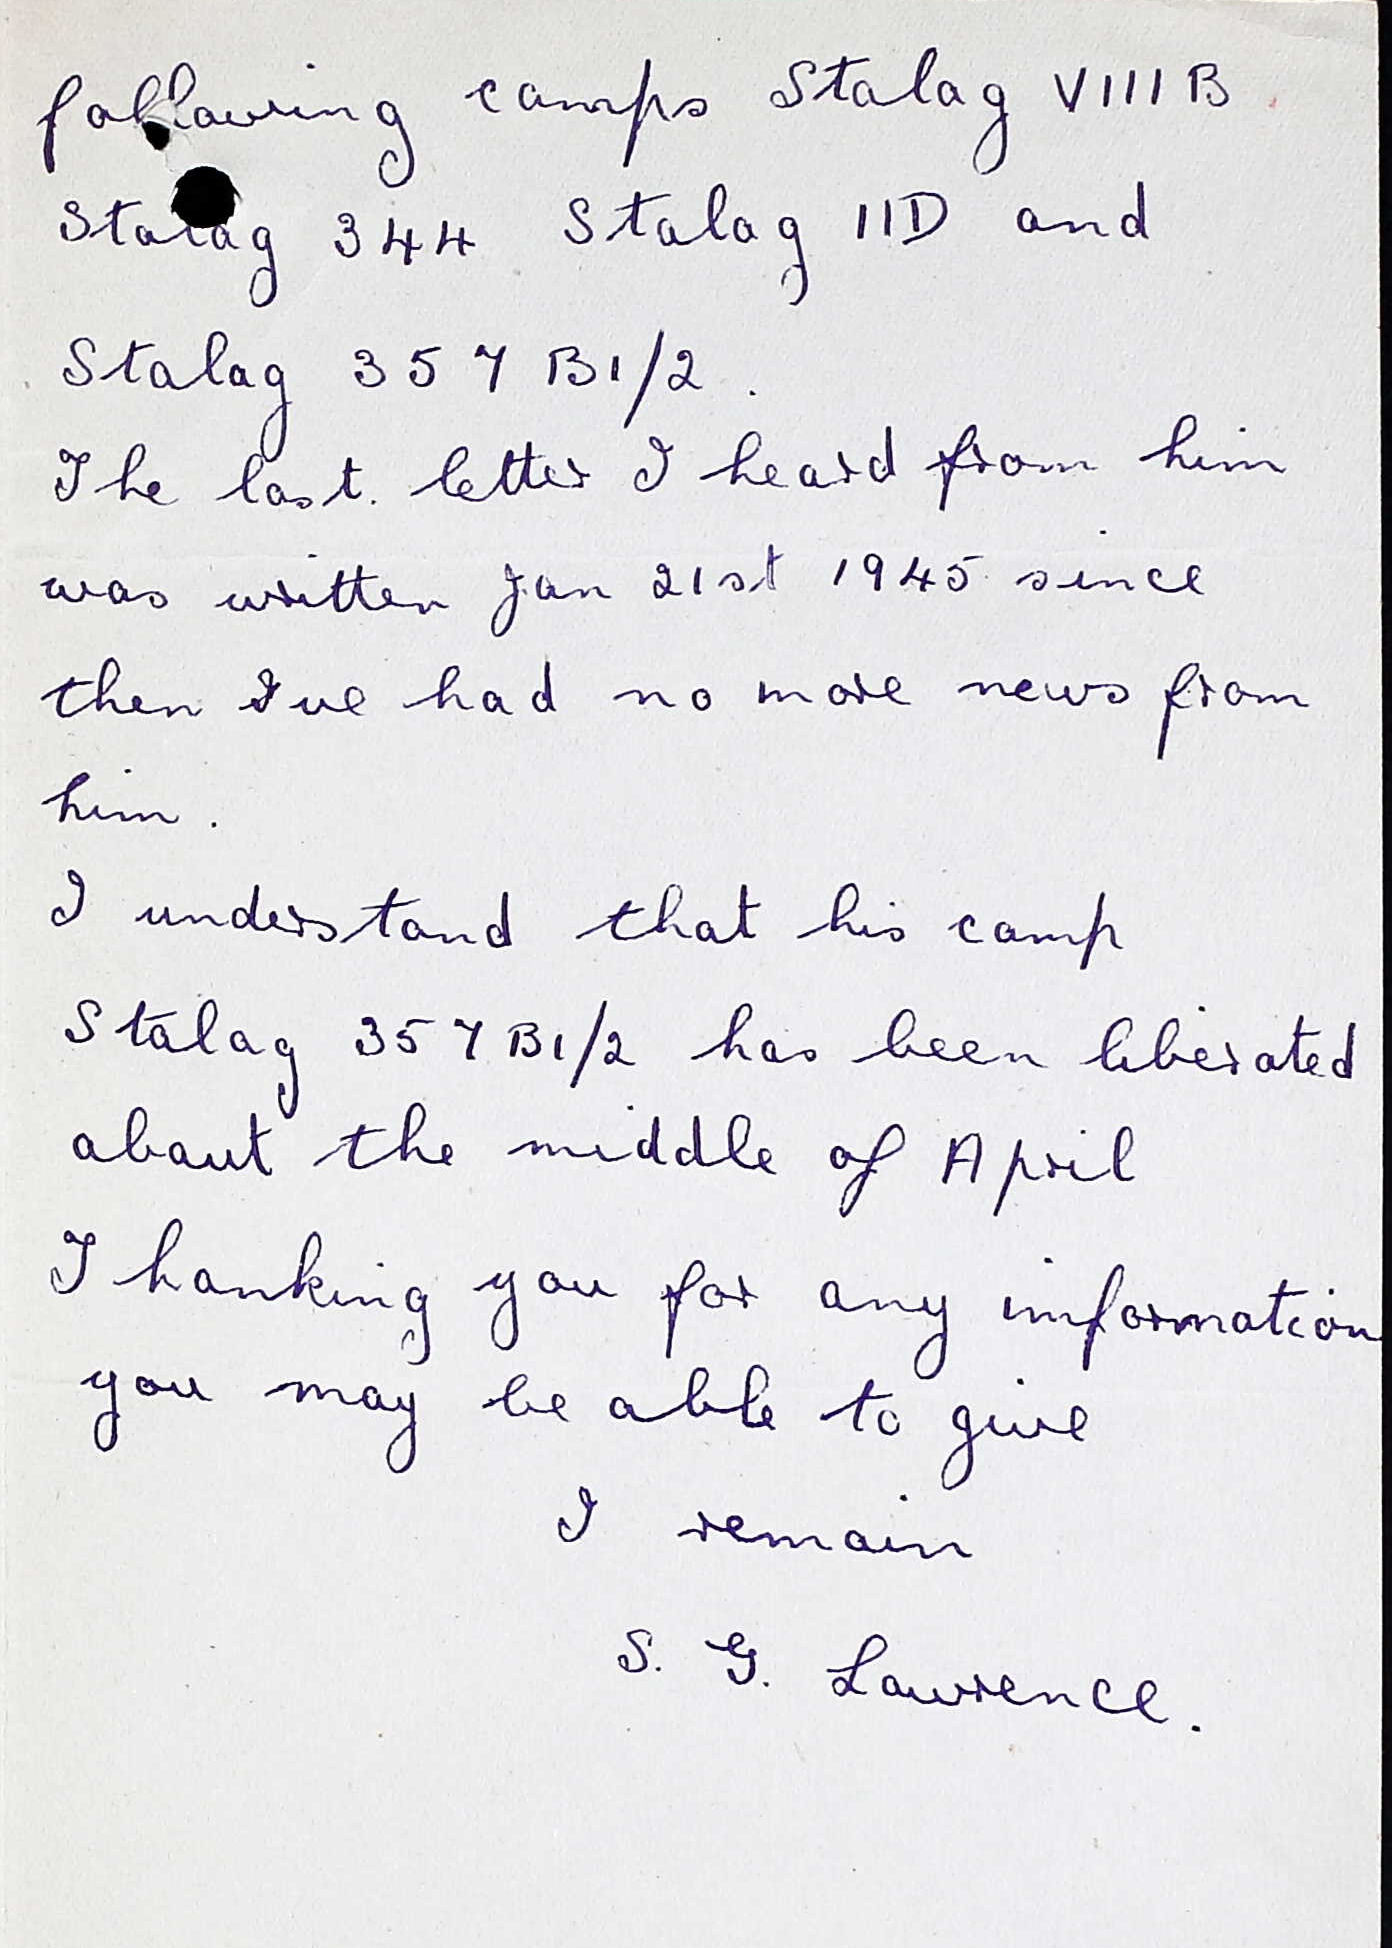 following camps Stalag VIII B
Stalag 344 Stalag IID and
Stalag 357 B1/2.
The last. letter I heard from him
was written Jan 21st 1945 since
then Ive had no more news from
him.
I understand that his camp
Stalag 357 B1/2 has been liberated
about the middle of April
Thanking you for any information
you may be able to give
I remain
S. G. Lawrence.